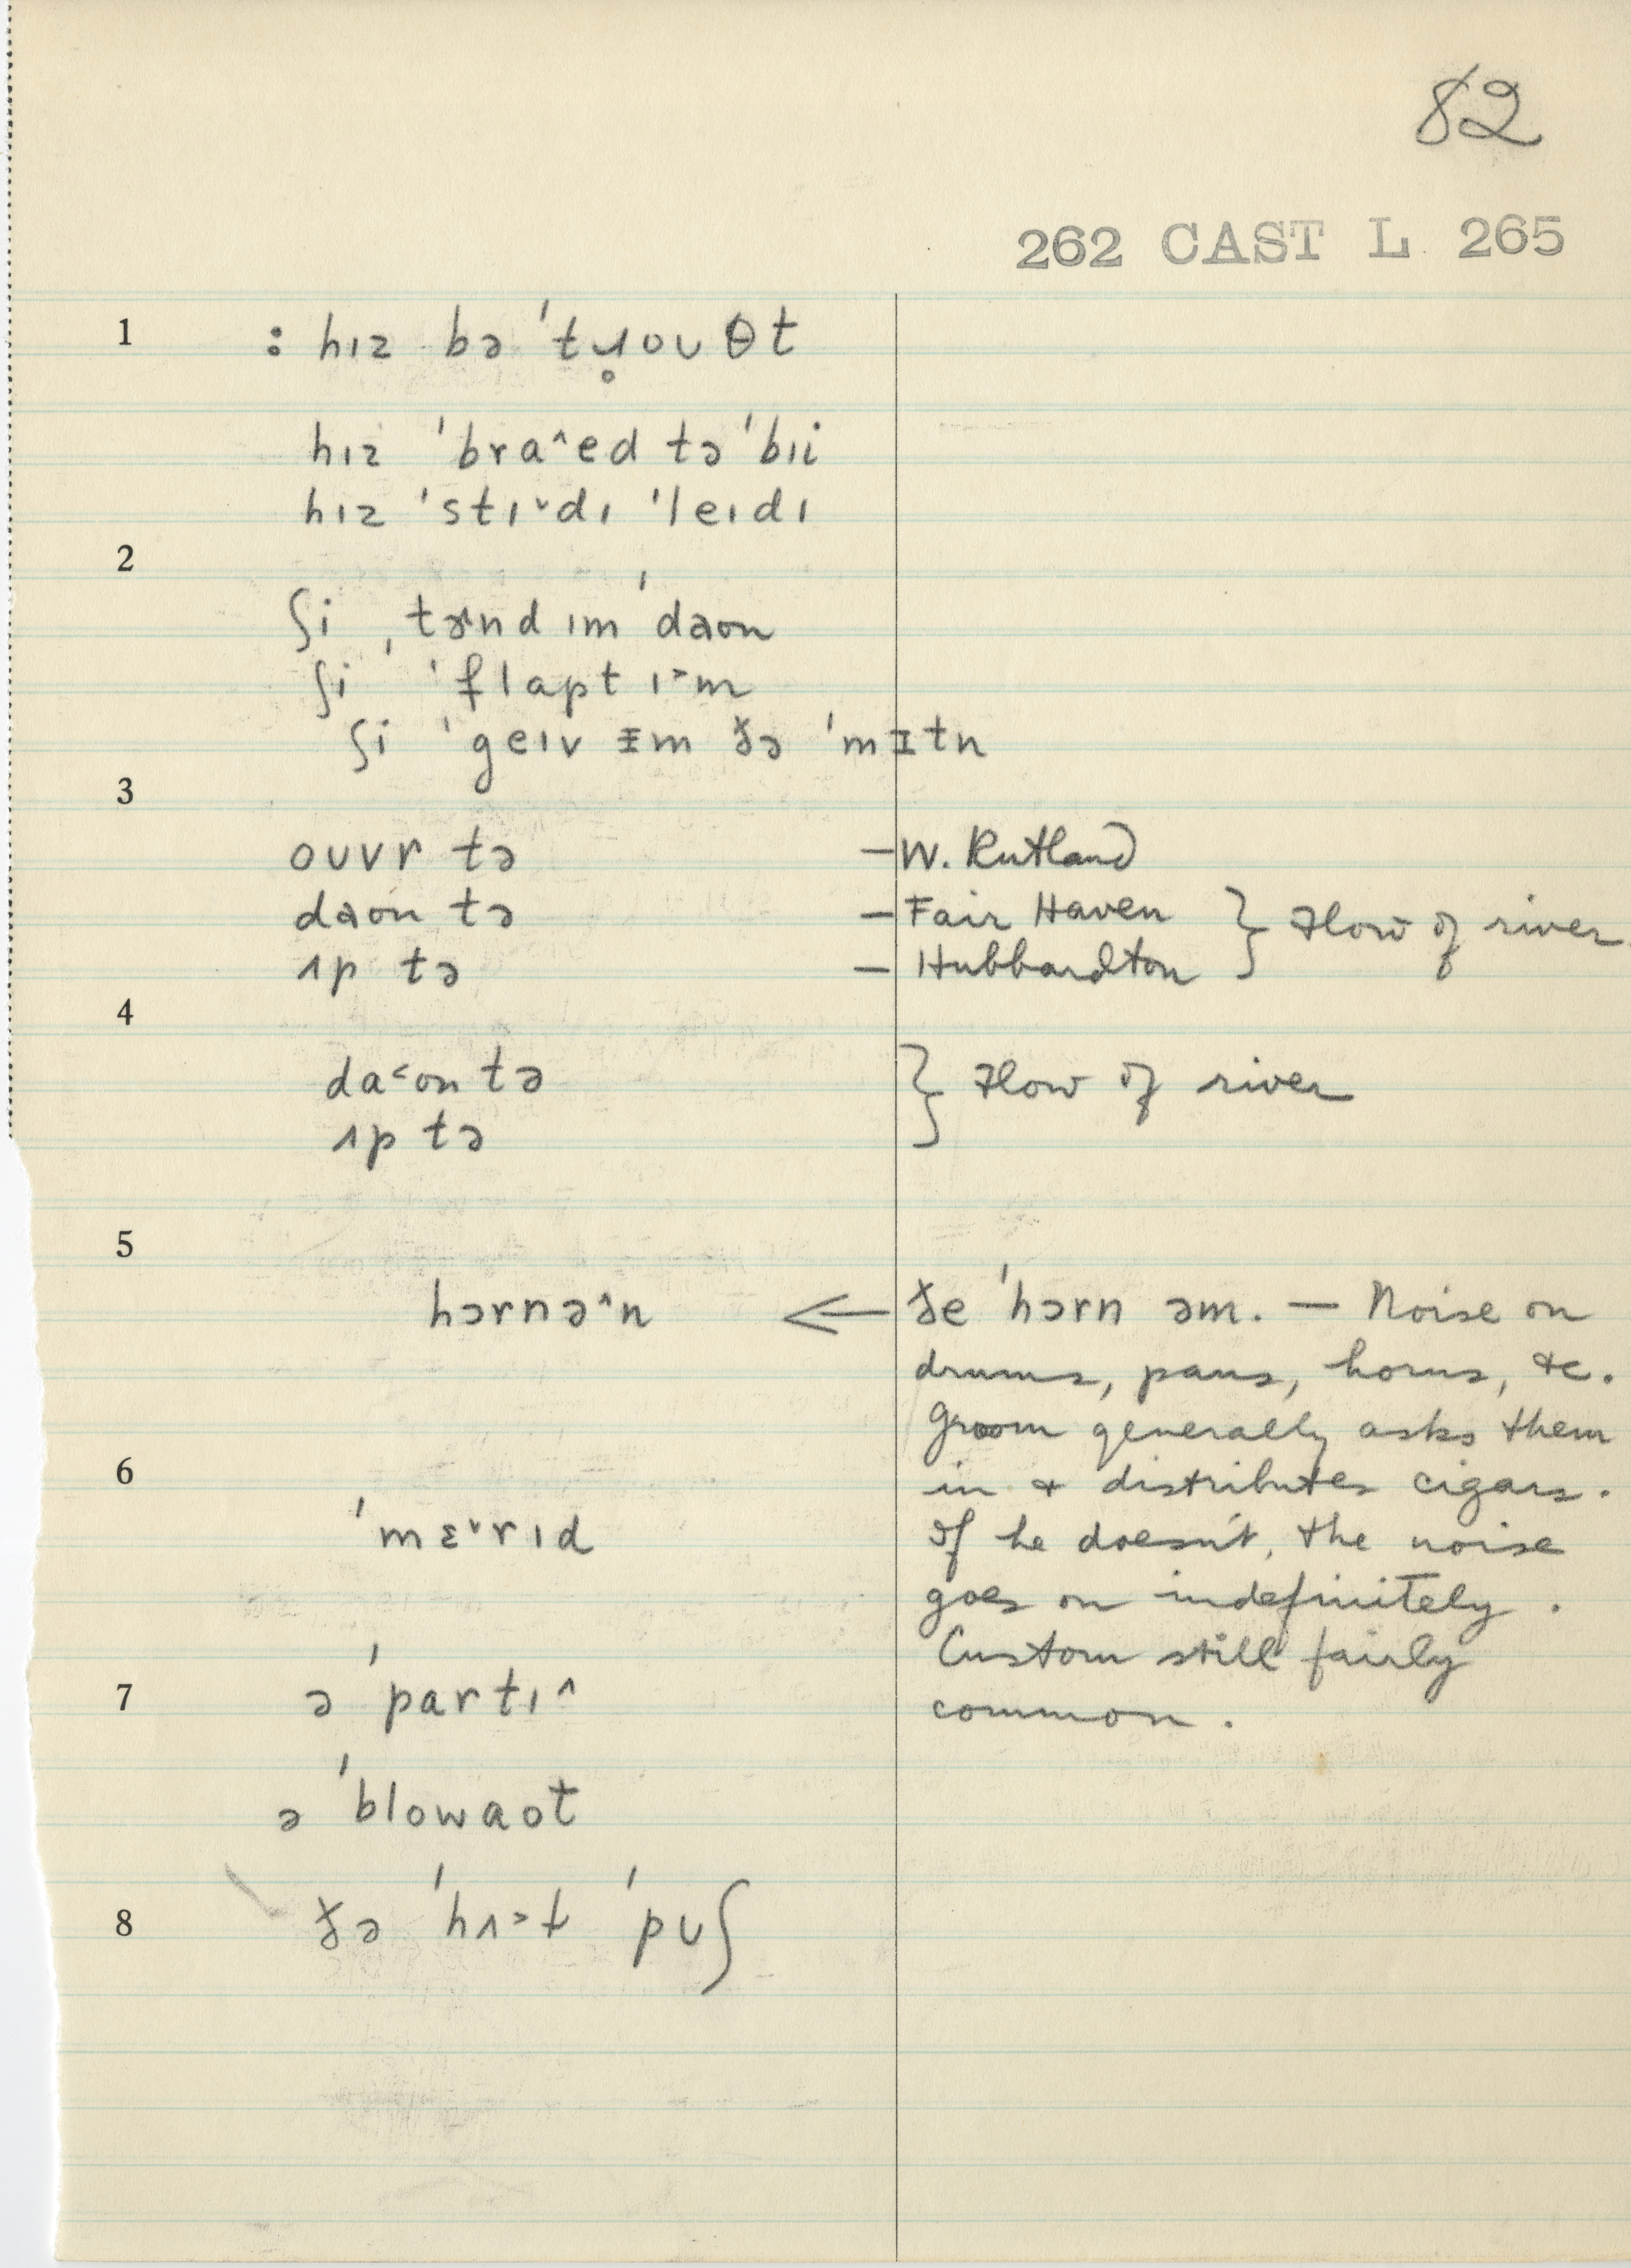 82
262 CAST L 265
1 : hɪz bə 'tɹ̥oʊθt
hɪz 'braˆed tə 'bɪi
hɪz 'stɪˇdɪ 'leɪdɪ
2
ʃi ˌtɝnd ɪm 'daʊn
ʃi 'flapt ɪ˃m
ʃi 'geɪv ᵻm ðə 'mᵻtn
3
oʊvr tə — W. Rutland
daʊn tə — Fair Haven } Flow of river.
ʌp tə — Hubbardton
4
da˂ʊn tə } Flow of river
ʌp tə
5
hɔrnəˆn ← ðe 'hɔrn əm. — Noise on
drums, pans, horns, &c.
Groom generally asks them
6 in & distributes cigars.
'mɛˇrɪd If he doesn't, the noise
goes on indefinitely.
Custom still fairly
7 ə 'partɪˆ common.
ə 'blowaʊt
8 ðə 'hʌ˃ɫ 'pʊʃ